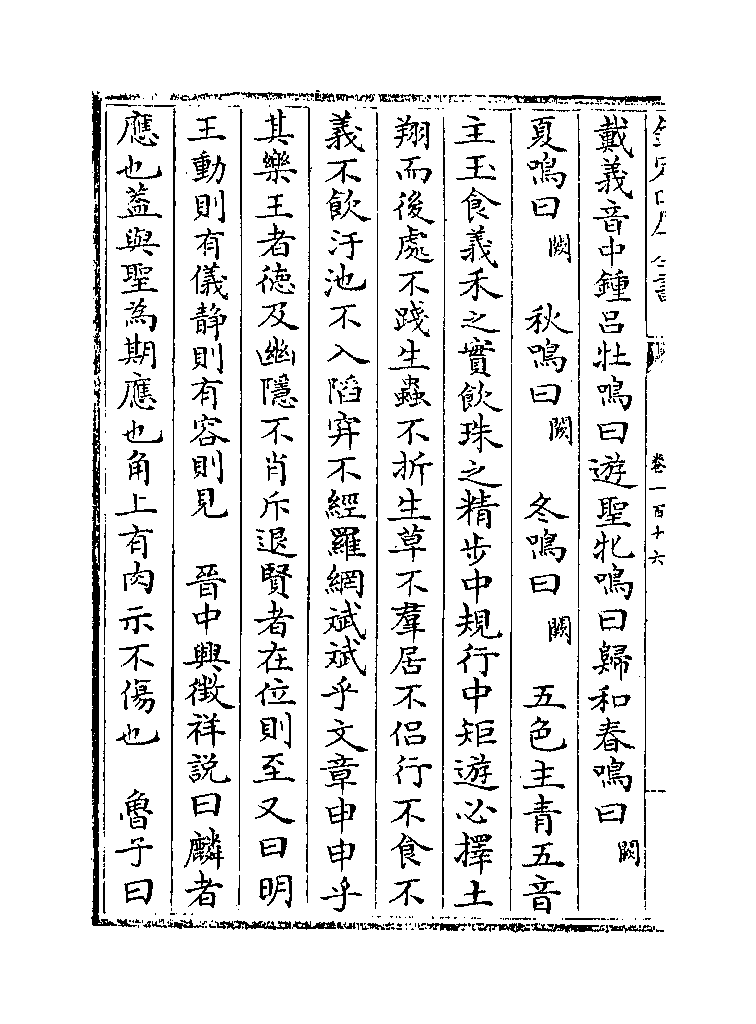 欽定四庫全書
卷一百十六
戴義音中鍾呂牡鳴曰遊聖牝鳴曰歸和春鳴曰 闕
夏鳴曰 闕 秋鳴曰 闕 冬鳴曰 闕 五色主青五音
主玉食義禾之實飲珠之精步中規行中矩遊必擇土
翔而後處不踐生蟲不折生草不羣居不侣行不食不
義不飲汙池不入陷穽不經羅網斌斌乎文章申申乎
其樂王者徳及幽隱不肖斥退賢者在位則至又曰明
王動則有儀静則有容則見 晉中興徵祥説曰麟者
應也葢與聖為期應也角上有肉示不傷也 魯子曰